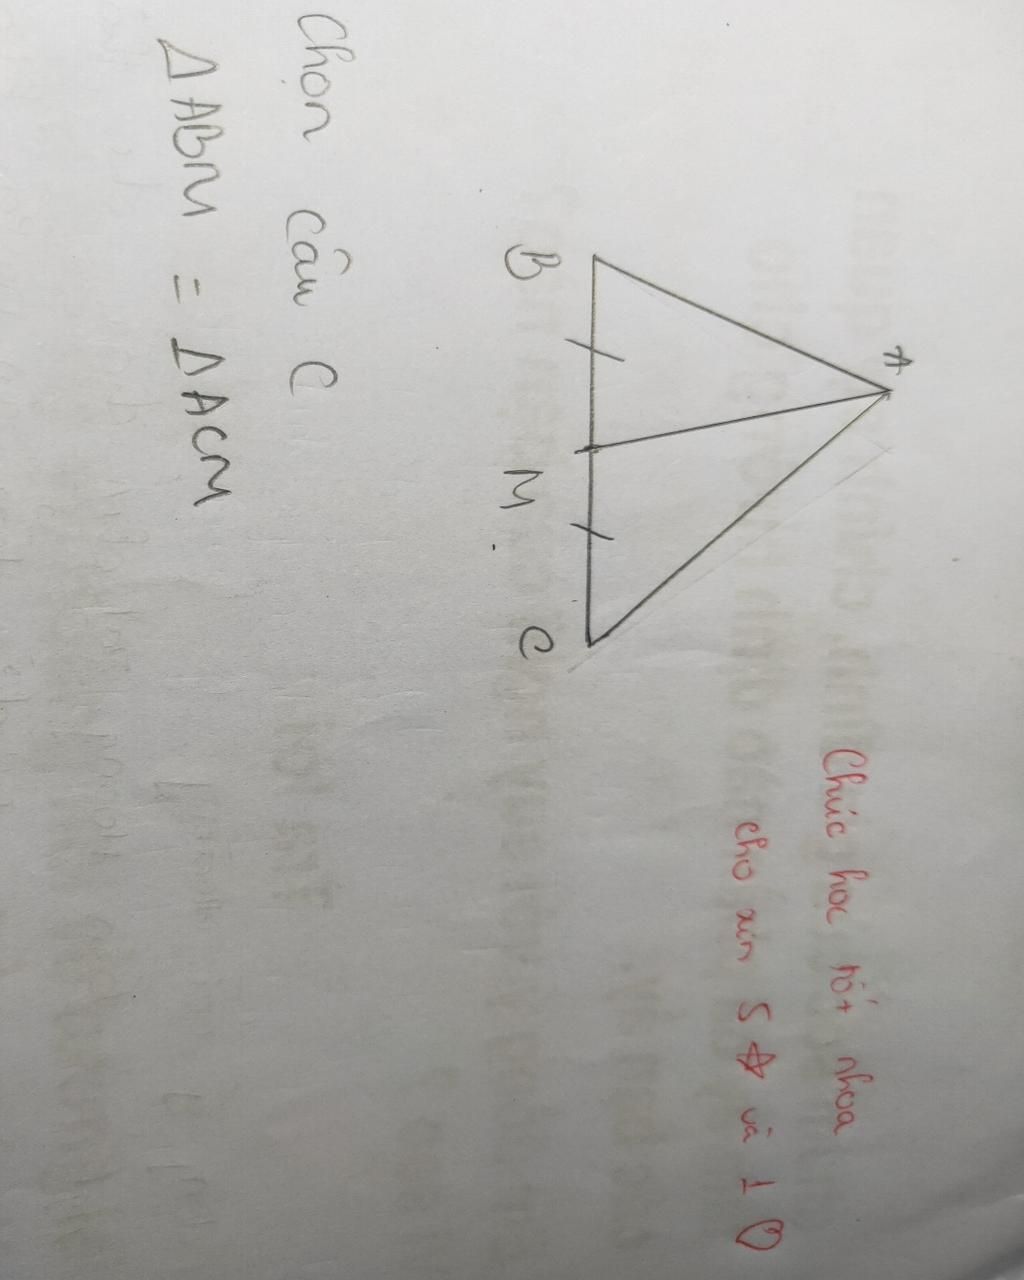 A
B
M
C
Chúc học tốt nhoa
cho xin 5 ☆ và 1 ♡
Chọn câu C
Δ ABM = Δ ACM